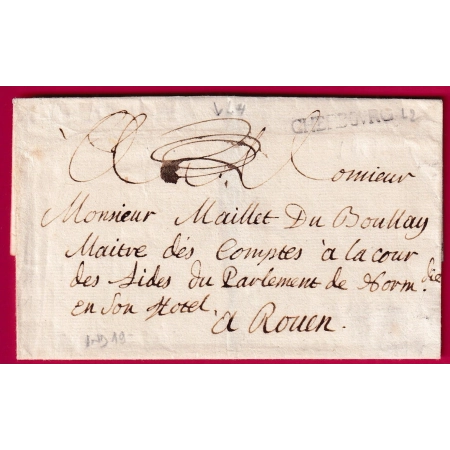 CHERBOURG 12
A Monsieur
Monsieur Maillet Du Boullay
Maitre dés Comptes à la cour
des Aides du Parlement de Normdie
en son Hotel
a Rouen.
ind 19